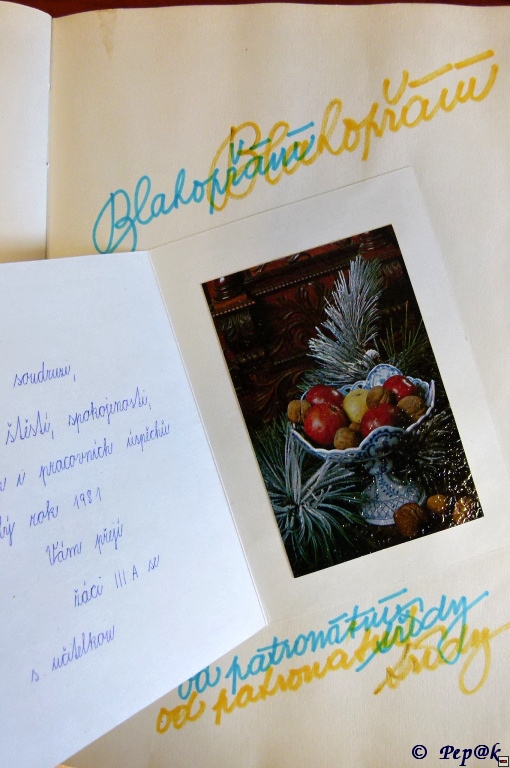 Blahopřání
Blahopřání
soudruzi,
štěstí, spokojenosti,
i pracovních úspěchů
rok 1981
Vám přejí
žáci III A se
s. učitelkou
od patronátní třídy
od patronátní třídy
© Pep@k